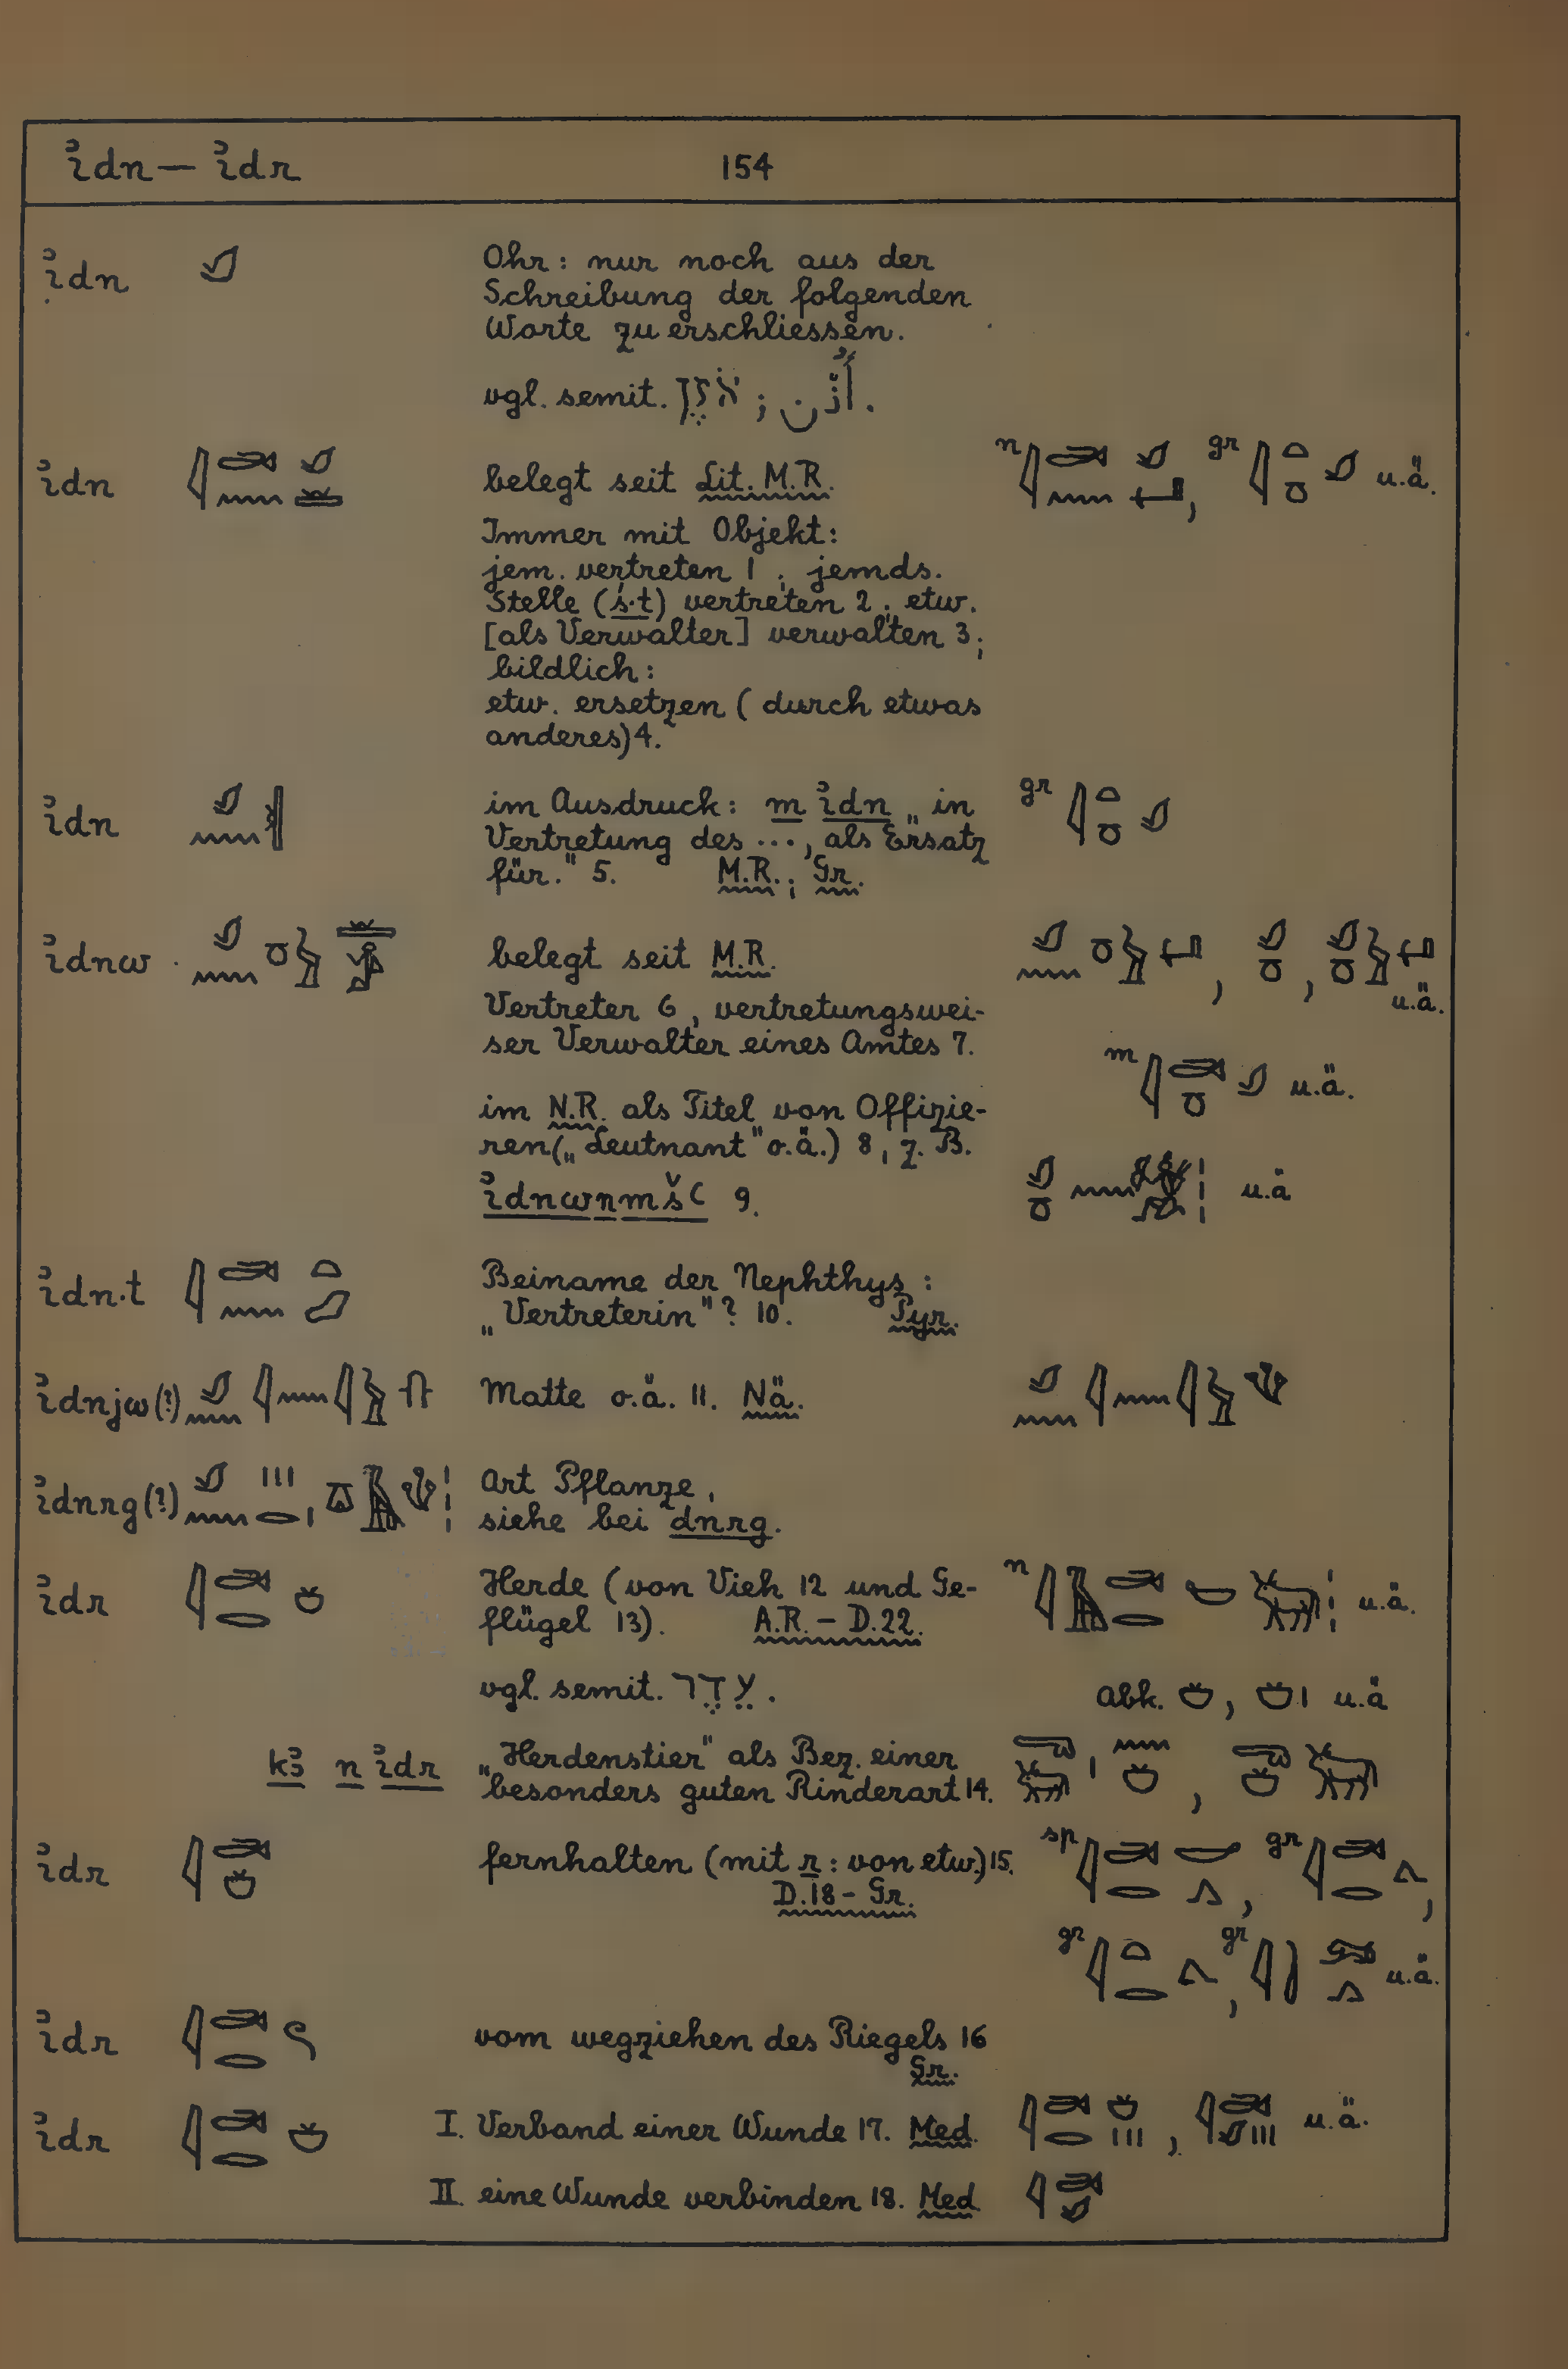 ỉdn — ỉdr 154
ỉdn Ohr: nur noch aus der
Schreibung der folgenden
Worte zu erschliessen.
vgl. semit. אֹזֶן ; أُذْن .
ỉdn belegt seit Lit. M.R. n , gr u.ä.
Immer mit Objekt:
jem. vertreten 1 ; jemds.
Stelle (ś·t) vertreten 2 ; etw.
[als Verwalter] verwalten 3 ;
bildlich:
etw. ersetzen (durch etwas
anderes) 4.
ỉdn im Ausdruck: m ỉdn „in gr
Vertretung des ..., als Ersatz
für." 5. M.R. ; Gr.
ỉdnw belegt seit M.R. , , u.ä.
Vertreter 6, vertretungswei-
ser Verwalter eines Amtes 7. m u.ä.
im N.R. als Titel von Offizie-
ren („Leutnant" o.ä.) 8, z. B.
ỉdnw n mšꜥ 9. u.ä
ỉdn·t Beiname der Nephthys :
„Vertreterin"? 10. Pyr.
ỉdnjw(?) Matte o.ä. 11. Nä.
ỉdnrg(?) Art Pflanze,
siehe bei dnrg.
ỉdr Herde (von Vieh 12 und Ge- n u.ä.
flügel 13). A.R. – D.22.
vgl. semit. עֵדֶר . abk. , u.ä
kꜣ n ỉdr „Herdenstier" als Bez. einer
besonders guten Rinderart 14. ,
ỉdr fernhalten (mit r : von etw.) 15. sp , gr ,
D.18 – Gr.
gr , gr u.ä.
ỉdr vom wegziehen des Riegels 16
Gr.
ỉdr I. Verband einer Wunde 17. Med. , u.ä.
II. eine Wunde verbinden 18. Med.